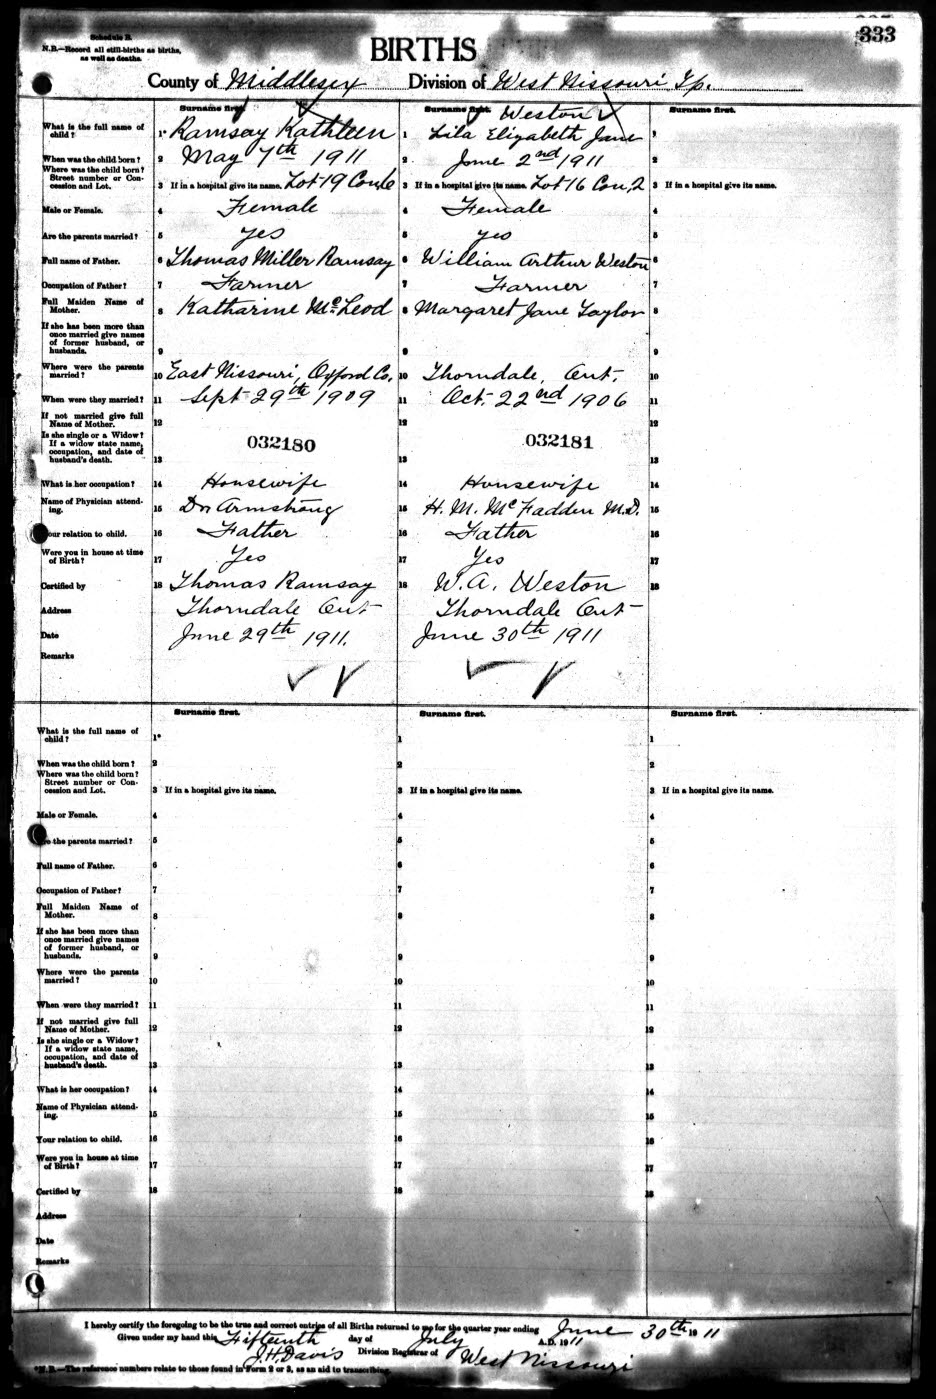 333
Schedule B.
N.B.—Record all still-births as births,
as well as deaths.
BIRTHS
County of Middlesex Division of West Nissouri Tp.
Surname first. Surname first. Weston Surname first.
What is the full name of
child? 1* Ramsay Kathleen 1 Lila Elizabeth Jane 1
When was the child born? 2 May 7th 1911 2 June 2nd 1911 2
Where was the child born?
Street number or Con-
cession and Lot. 3 If in a hospital give its name. Lot 19 Con 6 3 If in a hospital give its name. Lot 16 Con, 2 3 If in a hospital give its name.
Male or Female. 4 Female 4 Female 4
Are the parents married? 5 yes 5 yes 5
Full name of Father. 6 Thomas Miller Ramsay 6 William Arthur Weston 6
Occupation of Father? 7 Farmer 7 Farmer 7
Full Maiden Name of
Mother. 8 Katharine McLeod 8 Margaret Jane Taylor 8
If she has been more than
once married give names
of former husband, or
husbands. 9 9
Where were the parents
married? 10 East Nissouri, Oxford Co. 10 Thorndale, Ont. 10
When were they married? 11 Sept 29th 1909 11 Oct. 22nd 1906 11
If not married give full
Name of Mother. 12 12 12
Is she single or a Widow?
If a widow state name,
occupation, and date of
husband's death. 13 032180 13 032181 13
What is her occupation? 14 Housewife 14 Housewife 14
Name of Physician attend-
ing. 15 Dr Armstrong 15 H. M. McFadden M.D. 15
Your relation to child. 16 Father 16 Father 16
Were you in house at time
of Birth? 17 Yes 17 Yes 17
Certified by 18 Thomas Ramsay 18 W. A. Weston 18
Address Thorndale Ont Thorndale Ont
Date June 29th 1911. June 30th 1911
Remarks
Surname first. Surname first. Surname first.
What is the full name of
child? 1* 1 1
When was the child born? 2 2 2
Where was the child born?
Street number or Con-
cession and Lot. 3 If in a hospital give its name. 3 If in a hospital give its name. 3 If in a hospital give its name.
Male or Female. 4 4 4
Are the parents married? 5 5 5
Full name of Father. 6 6 6
Occupation of Father? 7 7 7
Full Maiden Name of
Mother. 8 8 8
If she has been more than
once married give names
of former husband, or
husbands. 9 9 9
Where were the parents
married? 10 10 10
When were they married? 11 11 11
If not married give full
Name of Mother. 12 12 12
Is she single or a Widow?
If a widow state name,
occupation, and date of
husband's death. 13 13 13
What is her occupation? 14 14 14
Name of Physician attend-
ing. 15 15 15
Your relation to child. 16 16 16
Were you in house at time
of Birth? 17 17 17
Certified by 18 18 18
Address
Date
Remarks
I hereby certify the foregoing to be the true and correct entries of all Births returned to me for the quarter year ending June 30th 1911
Given under my hand this Fifteenth day of July A.D. 1911
J.H. Davis Division Registrar of West Nissouri
*N.B.—The reference numbers relate to those found in Form 2 or 3, as an aid to transcribing.